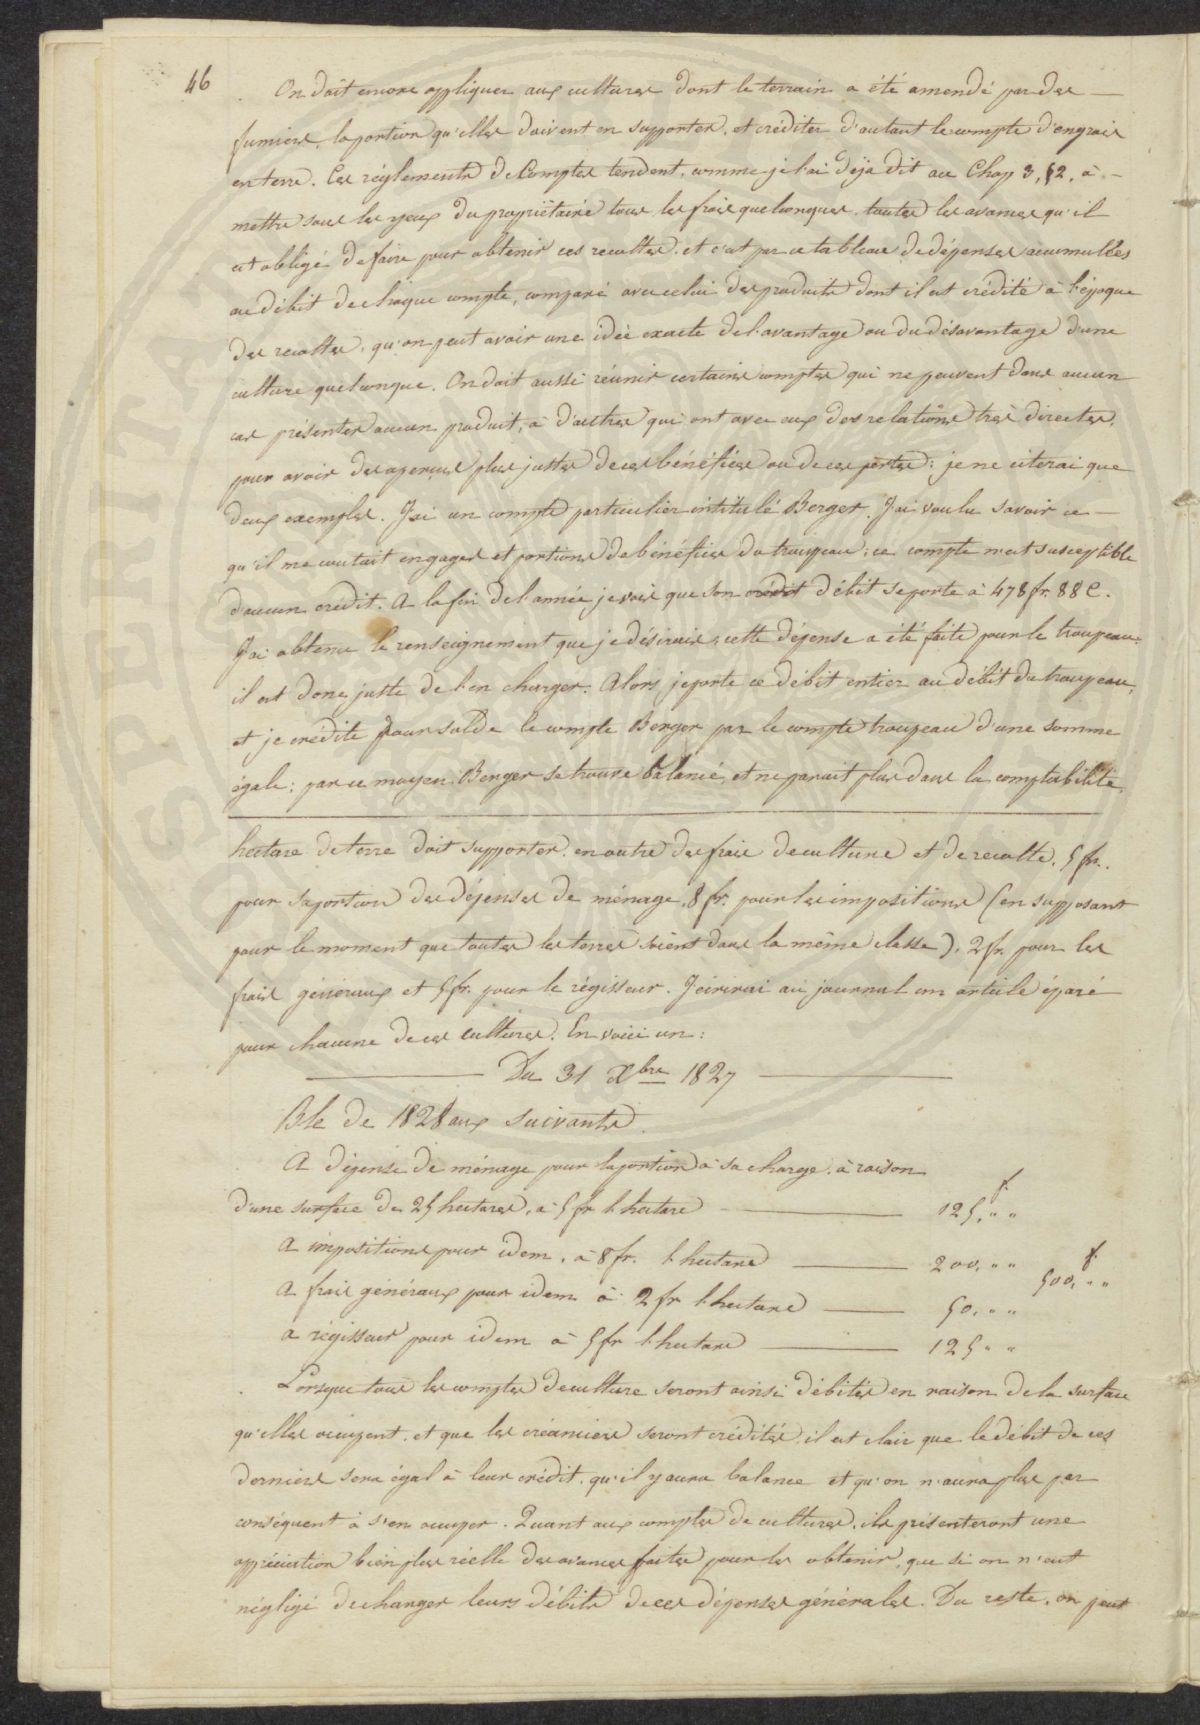 46
On doit encore appliquer aux cultures dont le terrain a été amendé par des —
fumiers, la portion qu'elles doivent en supporter, et créditer d'autant le compte d'engrais
en terre. Ces réglements de Comptes tendent, comme je l'ai déja dit au Chap 3, §2, à —
mettre sous les yeux du propriétaire tous les frais quelconques, toutes les avances qu'il
est obligé de faire pour obtenir ces recoltes; et c'est par ce tableau de dépenses accumullées
au débit de chaque compte, comparé avec celui des produits dont il est crédité à l'époque
des recoltes, qu'on peut avoir une idée exacte de l'avantage ou du désavantage d'une
culture quelconque. On doit aussi réunir certains comptes qui ne peuvent dans aucun
cas présenter aucun produit, à d'autres qui ont avec eux des relations très directes,
pour avoir des aperçus plus justes de ces bénéfices ou de ces pertes: je ne citerai que
deux exemples. J'ai un compte particulier intitulé Berger. J'ai voulu savoir ce —
qu'il me coutait en gages et portions de bénéfices du troupeau; ce compte n'est susceptible
d'aucun crédit. A la fin de l'année je vois que son crédit débit se porte à 478 fr. 88 c.
J'ai obtenu le renseignement que je désirais; cette dépense a été faite pour le troupeau;
il est donc juste de l'en charger. Alors, je porte ce débit entier au débit du troupeau,
et je crédite pour solde le compte Berger par le compte troupeau d'une somme
égale; par ce moyen Berger se trouve balancé, et ne parait plus dans la comptabilité.
hectare de terre doit supporter, en outre des frais de culture et de recolte, 5 fr.
pour sa portion des dépenses de ménage, 8 fr. pour les impositions (en supposant
pour le moment que toutes les terres soient dans la même classe), 2 fr. pour les
frais généraux et 5 fr. pour le régisseur. J'écrirai au journal un article séparé
pour chacune de ces cultures. En voici un:
Du 31 Xbre 1827
Ble de 1828 aux suivants.
A dépense de ménage pour la portion à sa charge, à raison
d'une surface de 25 hectares, à 5 fr l'hectare — 125, " " f.
A impositions pour idem, à 8 fr. l'hectare — 200, " "
500, " " f.
A frais généraux pour idem à 2 fr l'hectare — 50, " "
A régisseur pour idem à 5 fr l'hectare — 125 " "
Lorsque tous les comptes de culture seront ainsi débités en raison de la surface
qu'elles occupent, et que les créanciers seront crédités, il est clair que le débit de ces
derniers sera égal à leur crédit, qu'il y aura balance et qu'on n'aura plus par
conséquent à s'en occuper. Quant aux comptes de cultures, ils présenteront une
appréciation bien plus réelle des avances faites pour les obtenir, que si on n'eut
négligé de charger leurs débits de ces dépenses générales. Du reste, on peut